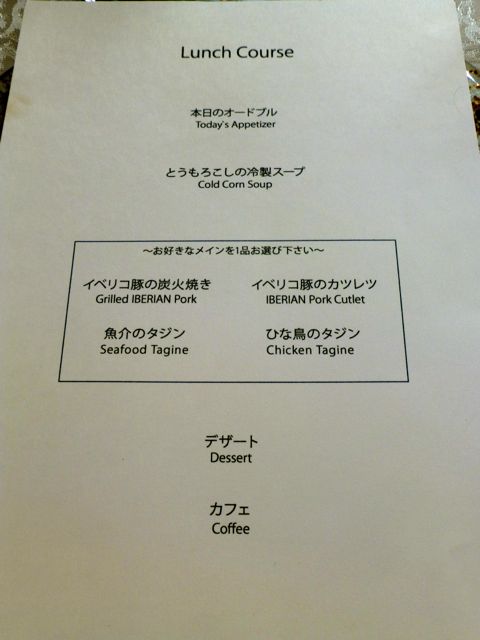 Lunch Course
本日のオードブル
Today's Appetizer
とうもろこしの冷製スープ
Cold Corn Soup
〜お好きなメインを1品お選び下さい〜
イベリコ豚の炭火焼き
Grilled IBERIAN Pork
イベリコ豚のカツレツ
IBERIAN Pork Cutlet
魚介のタジン
Seafood Tagine
ひな鳥のタジン
Chicken Tagine
デザート
Dessert
カフェ
Coffee